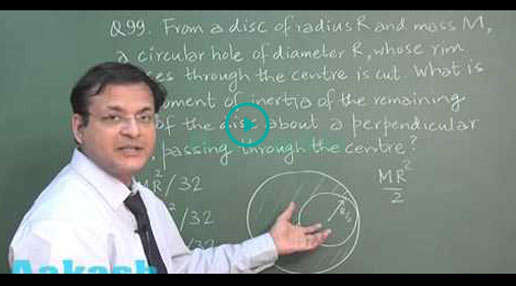 Q99. From a disc of radius R and mass M,
a circular hole of diameter R, whose rim
through the centre is cut. What is
of inertia of the remaining
of the disc about a perpendicular
passing through the centre?
MR²/2
/32
²/32
/32
R/2
Aakash